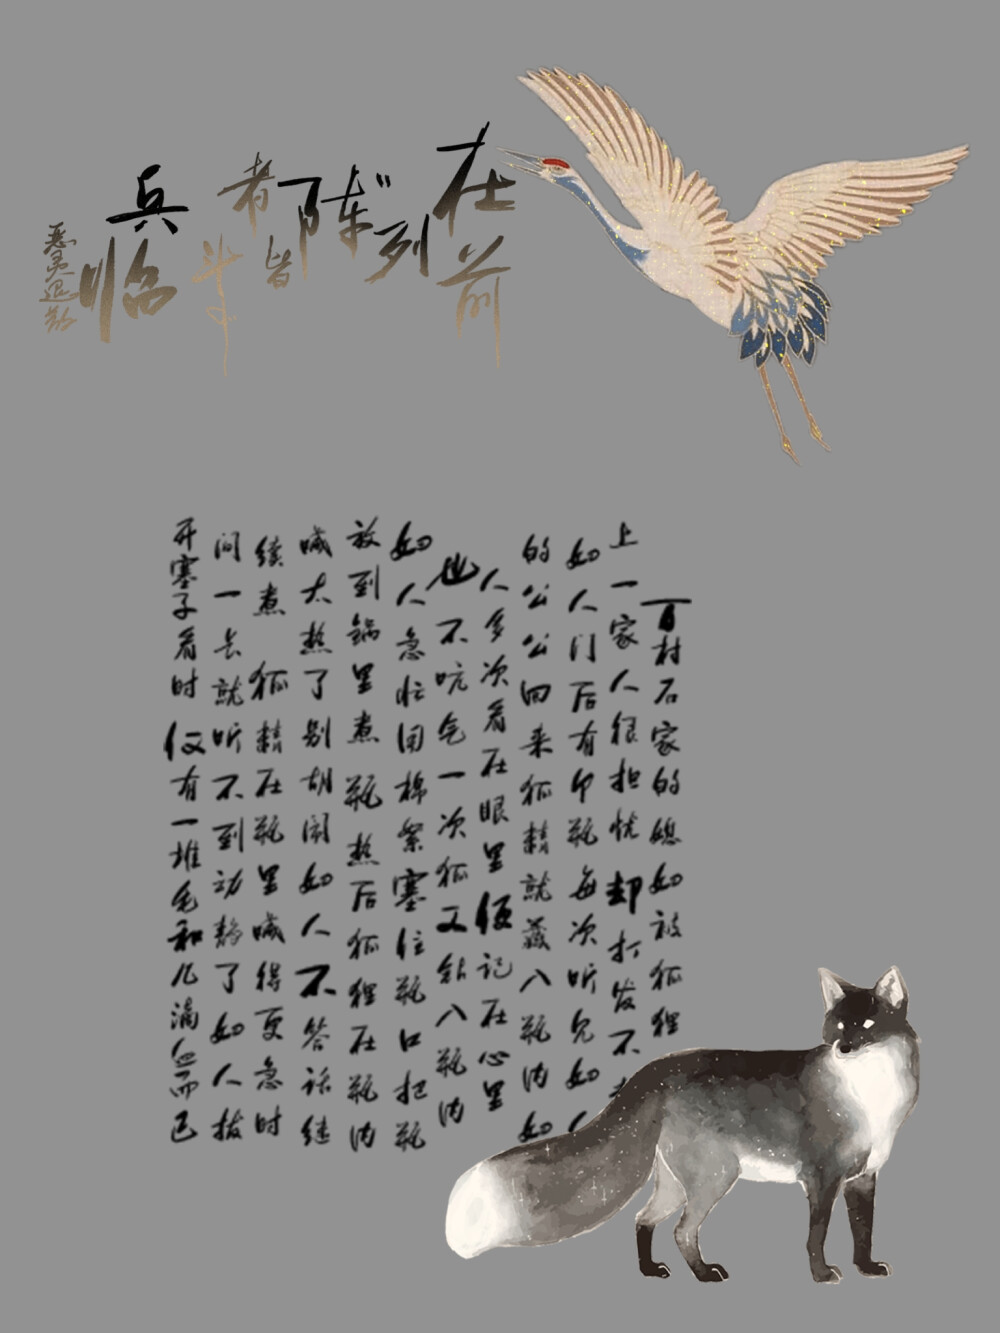 临兵斗者皆阵列在前
恶灵退散
百村石家的媳妇被狐狸
上一家人很担忧却打发不
妇人门后有个瓶每次听见妇
的公公回来狐精就藏入瓶内妇
人多次看在眼里便记在心里
也不吭气一次狐又钻入瓶内
妇人急忙用棉絮塞住瓶口把瓶
放到锅里煮瓶热后狐狸在瓶内
喊太热了别胡闹妇人不答话继
续煮 狐精在瓶里喊得更急时
间一长就听不到动静了妇人拔
开塞子看时仅有一堆毛和几滴血而已